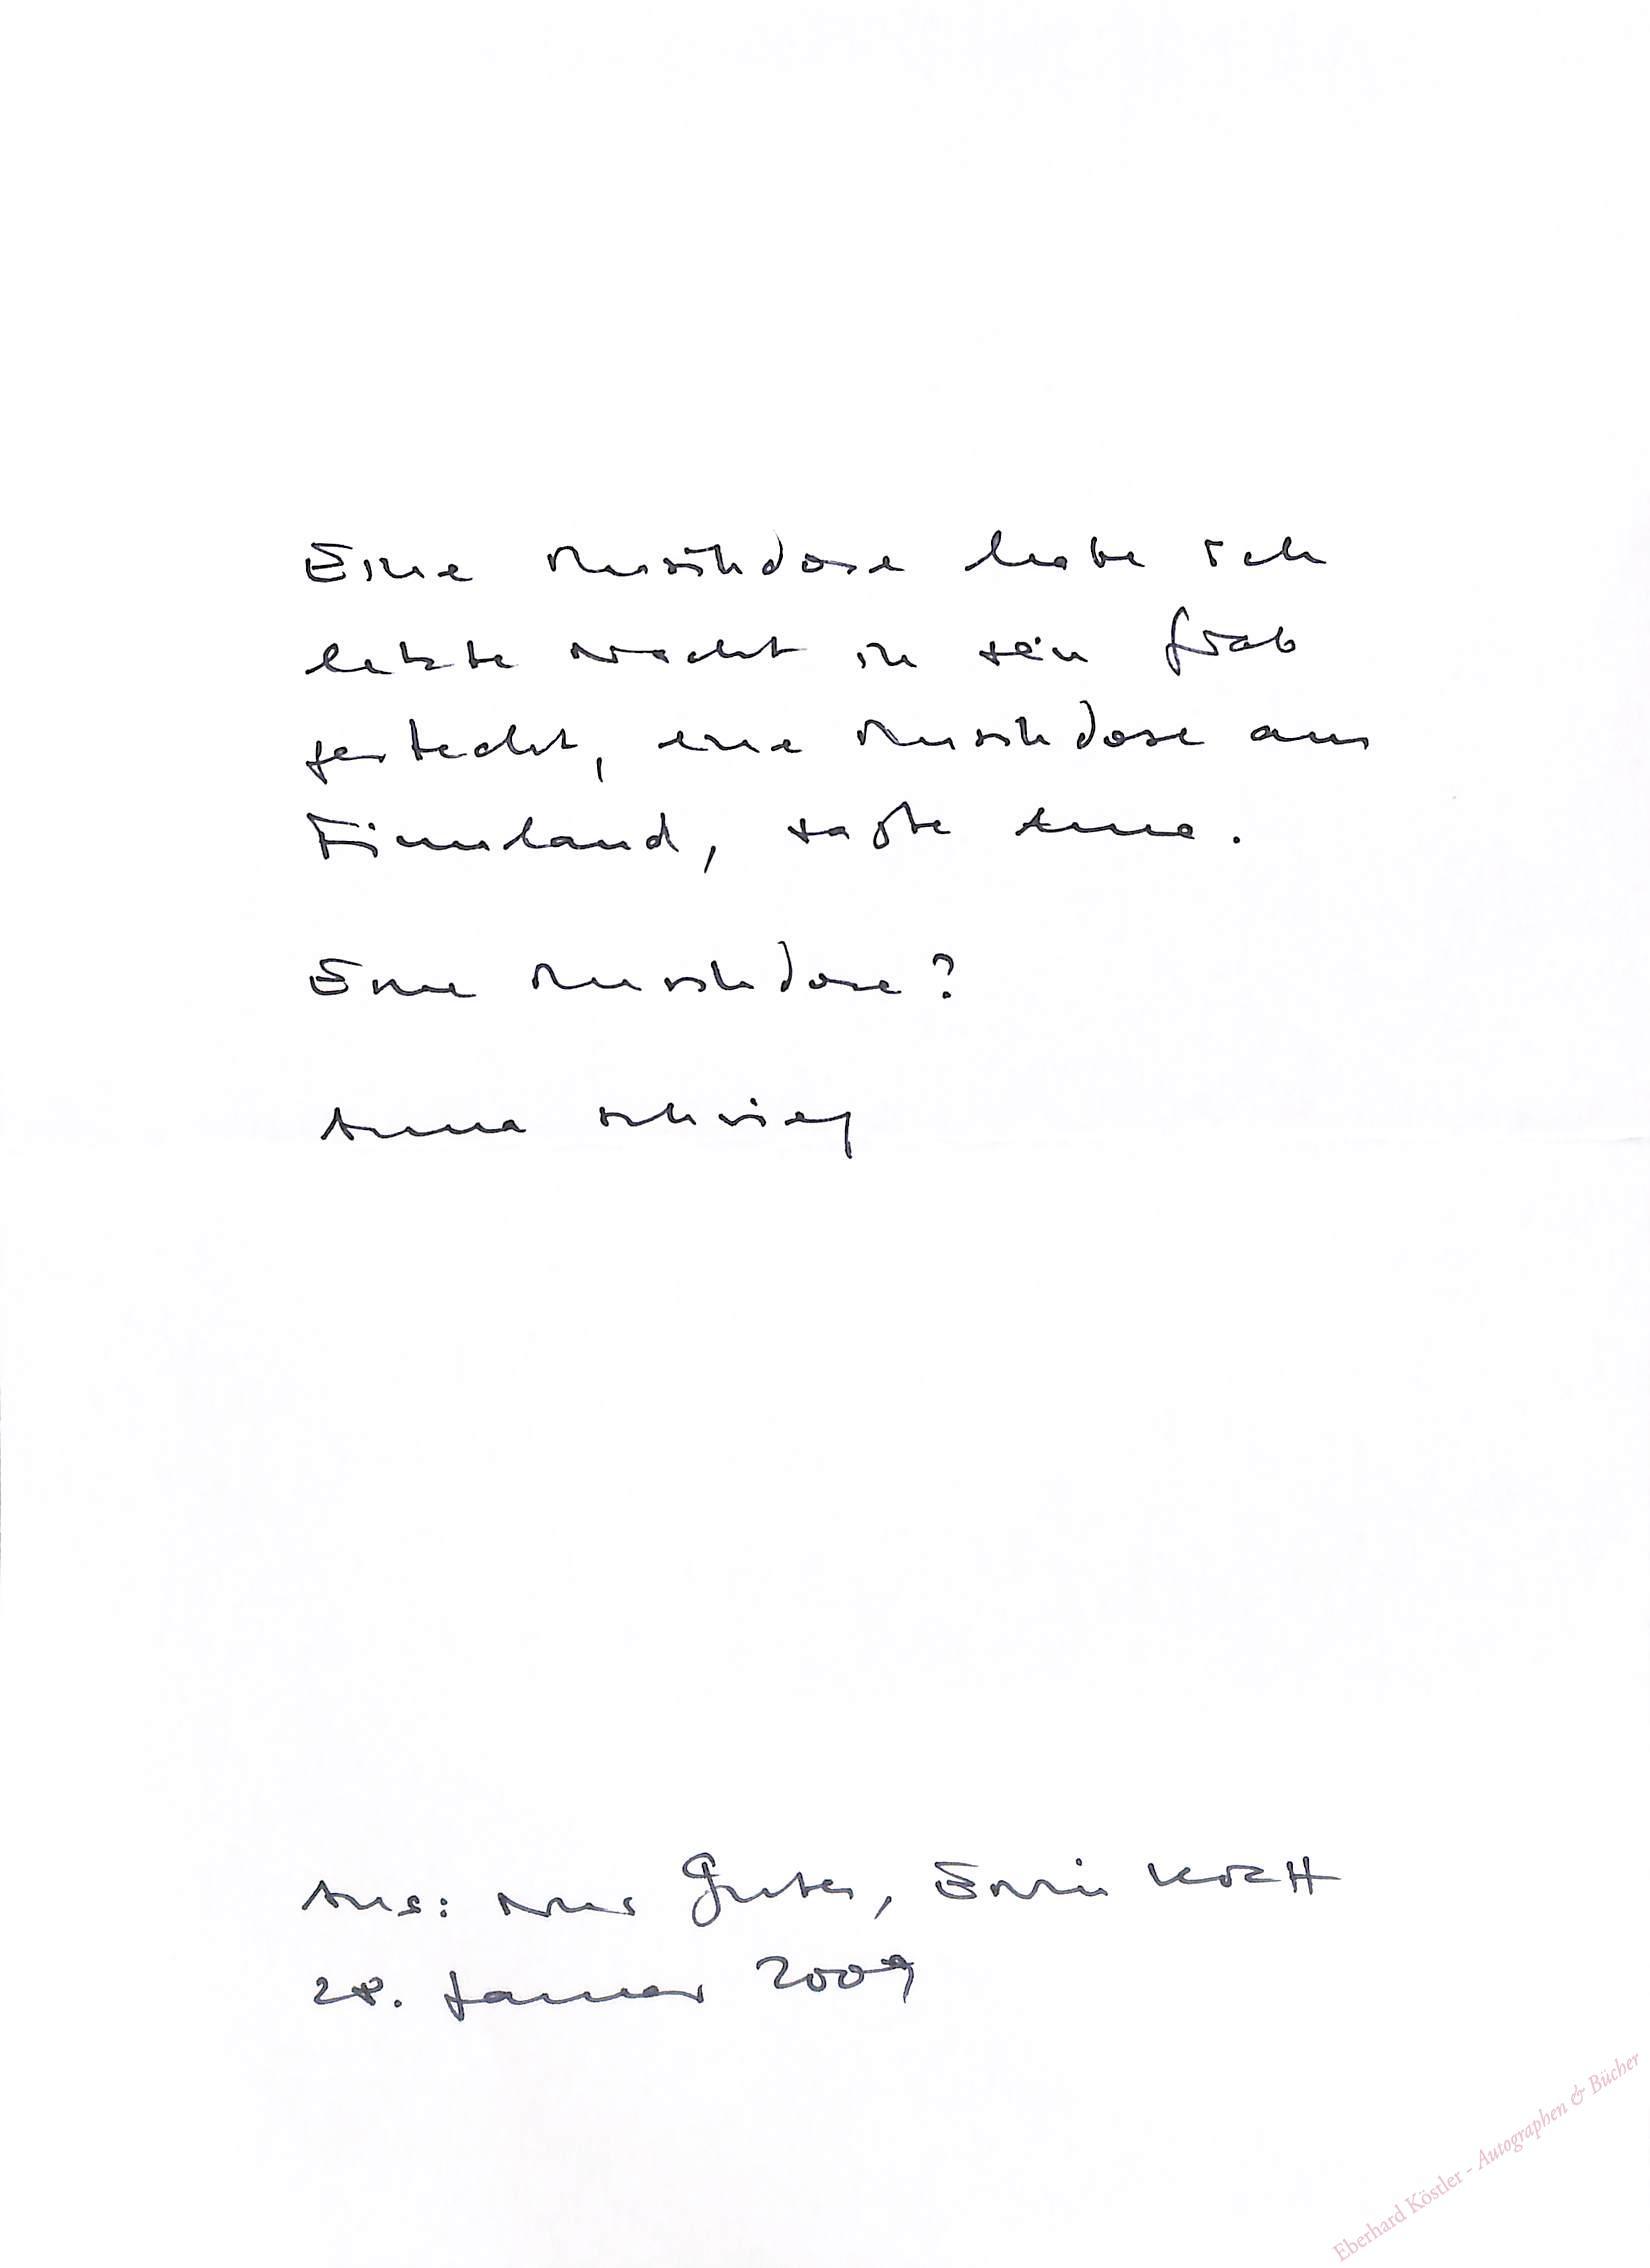 Eine Musikdose habe ich
letzte Nacht in sein Grab
gesteckt, eine Musikdose aus
Finnland, sagte Anna.
Eine Musikdose?
Anna schwieg
Aus: Nur Gutes, Erwin Koch
28. Januar 2009
Eberhard Köstler - Autographen & Bücher